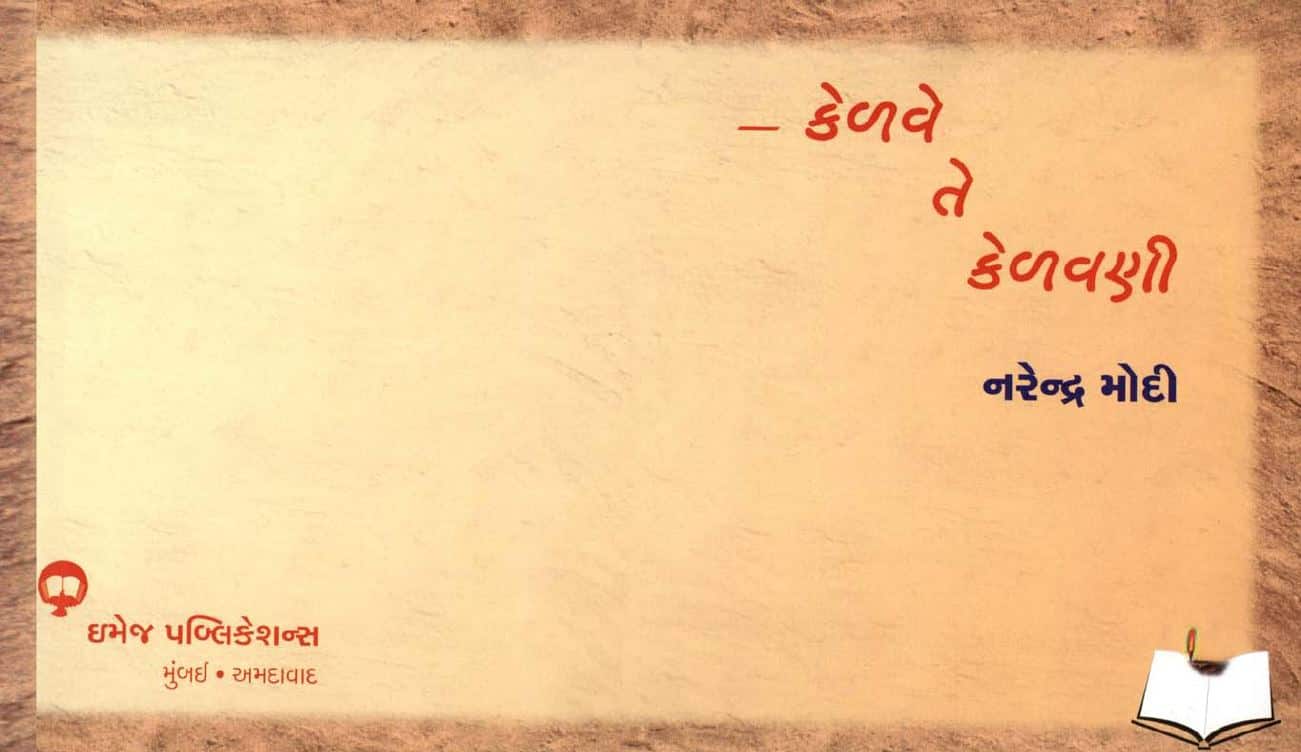 – કેળવે
તે
કેળવણી
નરેન્દ્ર મોદી
ઇમેજ પબ્લિકેશન્સ
મુંબઈ • અમદાવાદ